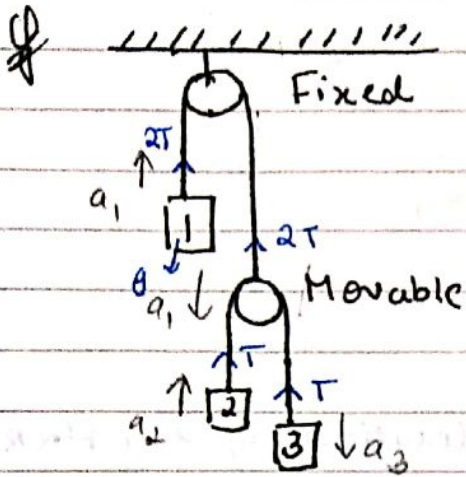 Fixed
2T
a₁
1
2T
θ
a₁
Movable
T
T
a₂
2
3
a₃